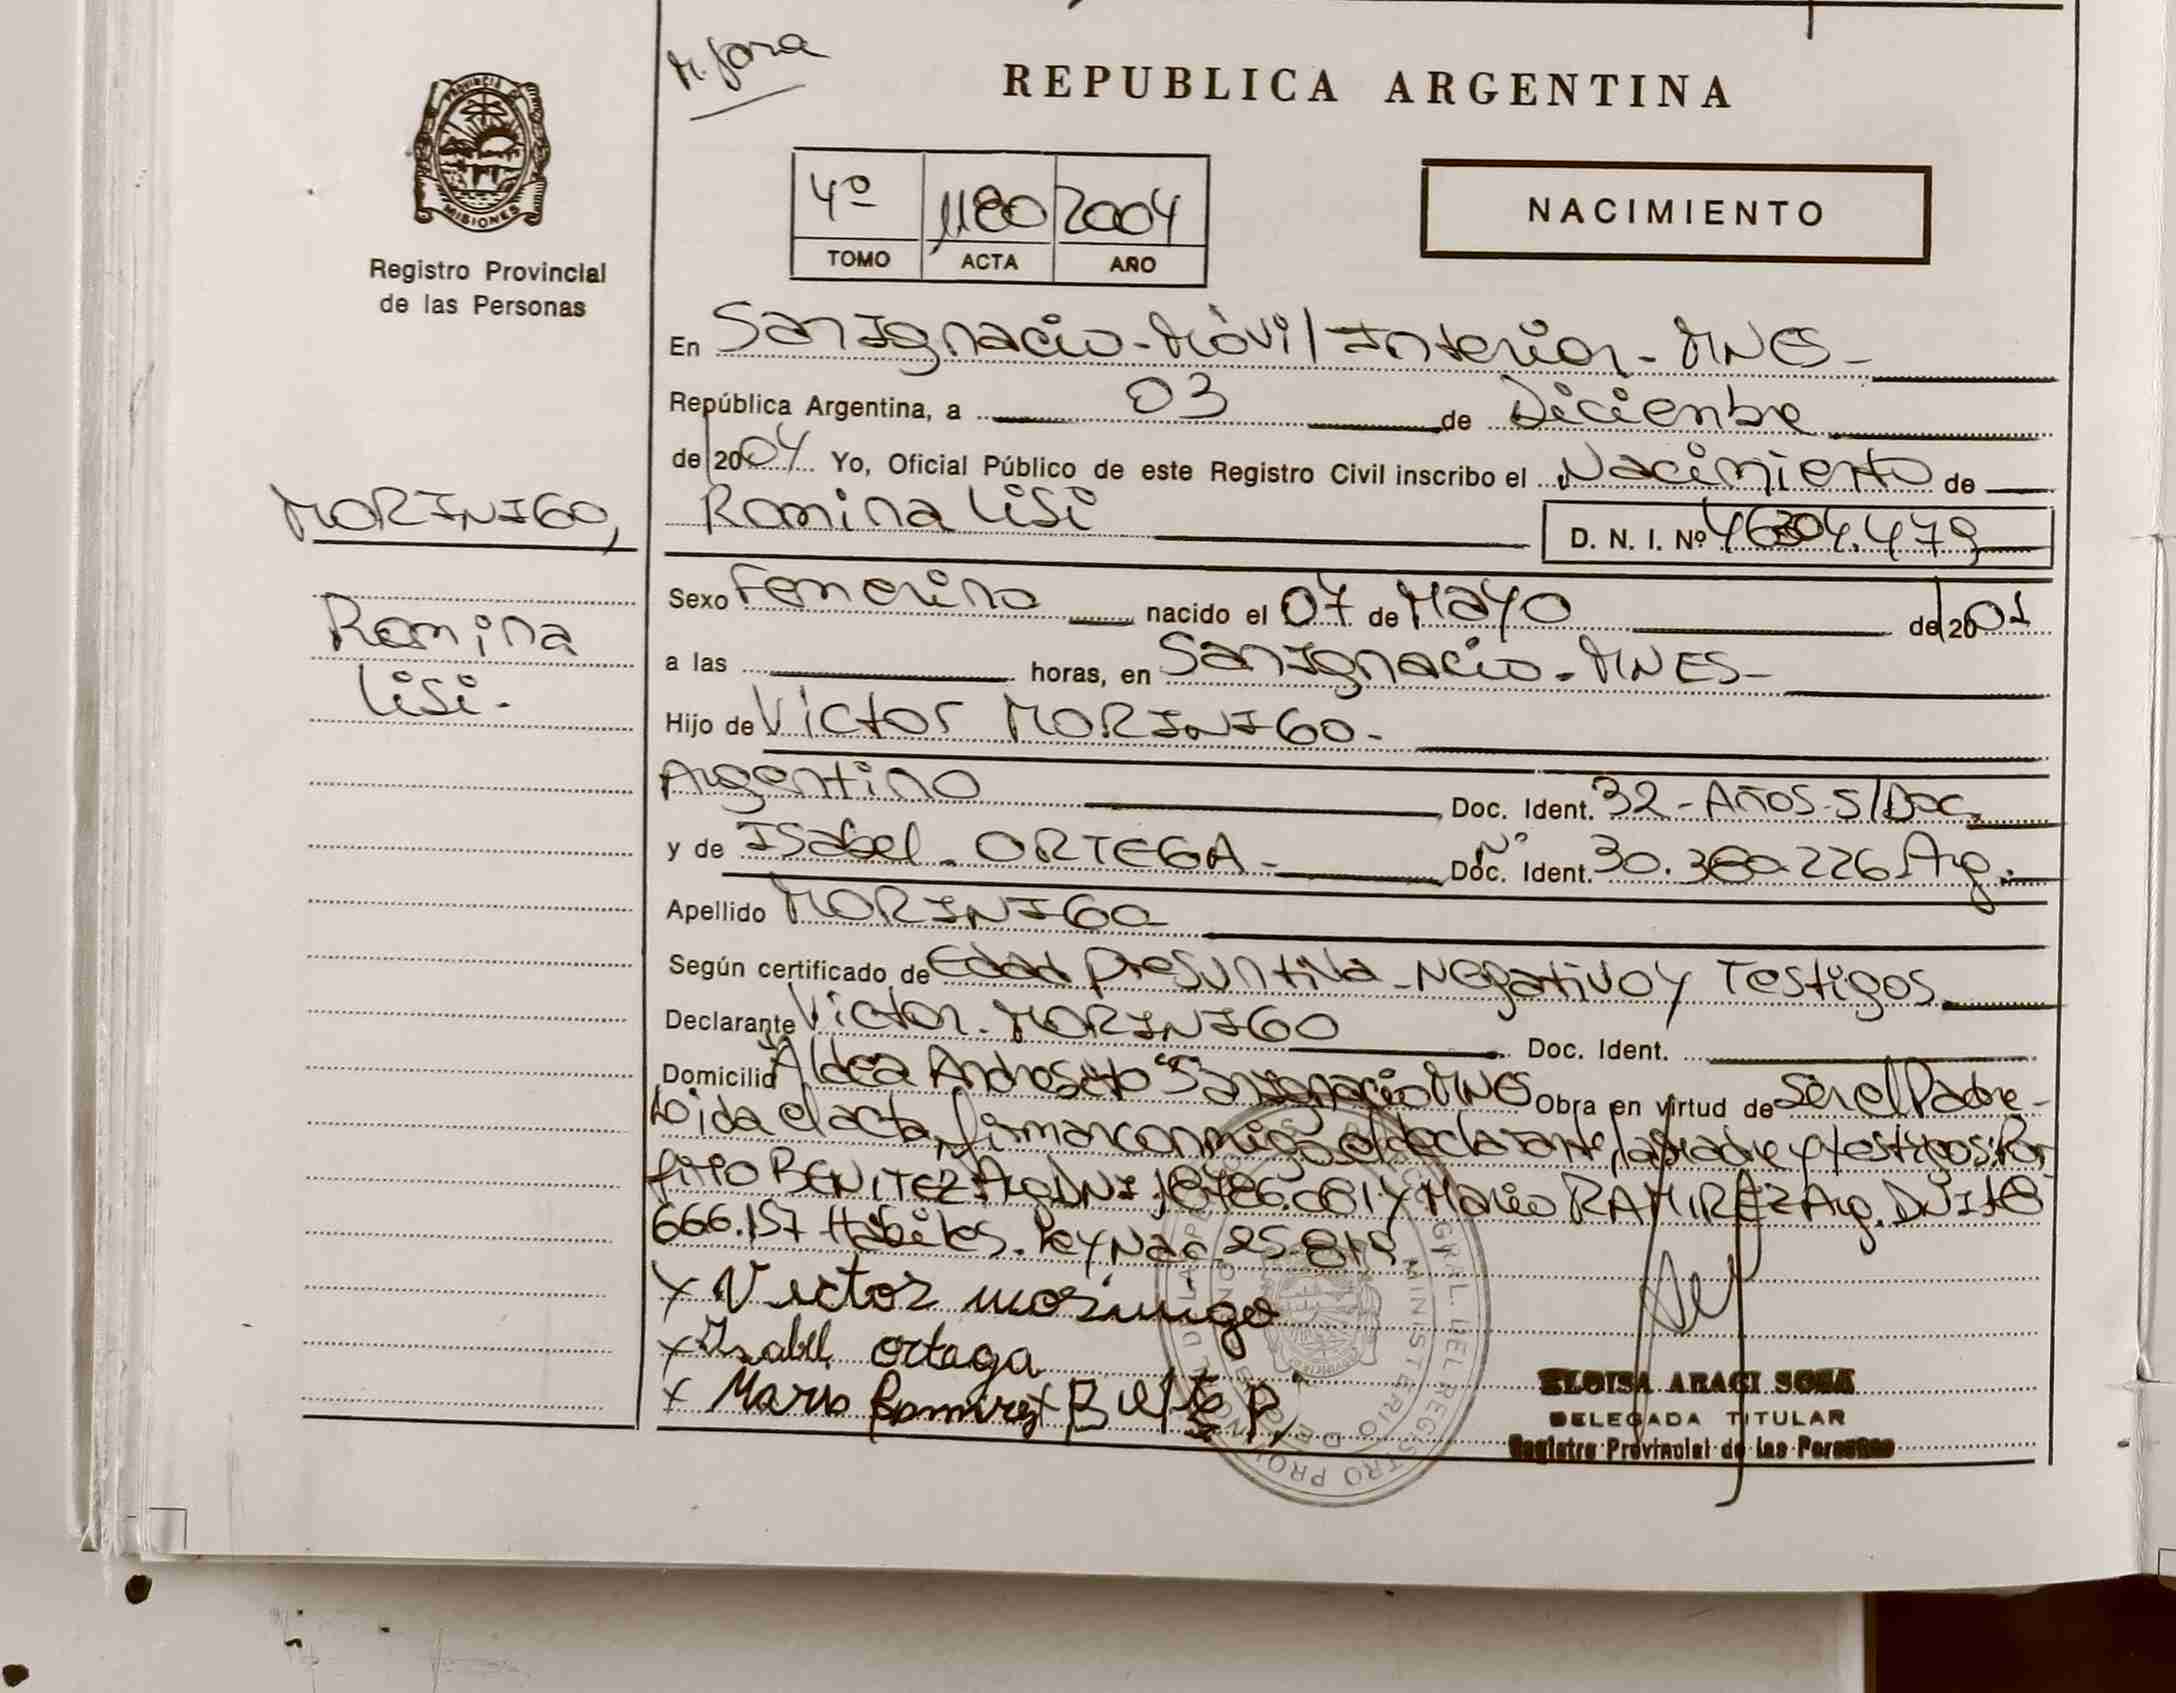 M. fora
REPUBLICA ARGENTINA
PROVINCIA DE
MISIONES
Registro Provincial
de las Personas
4º 1180 2004
TOMO ACTA AÑO
NACIMIENTO
En San Ignacio - Móvil Interior - MNES -
República Argentina, a 03 de Diciembre
de 2004 Yo, Oficial Público de este Registro Civil inscribo el Nacimiento de
MORINIGO,
Romina Lisi
D. N. I. Nº 46304.479
Romina
Lisi.-
Sexo Femenino nacido el 07 de Mayo de 2001
a las horas, en San Ignacio - MNES -
Hijo de Victor MORINIGO -
Argentino Doc. Ident. 32 - Años - S/Doc.
y de Isabel - ORTEGA - Doc. Ident. Nº 30.380.226 Arg.
Apellido MORINIGO
Según certificado de Edad presuntiva - Negativo y Testigos
Declarante Victor - MORINIGO Doc. Ident.
Domicilio Aldea Andresito San Ignacio MNES Obra en virtud de Ser el Padre -
Leida el acta, firman conmigo el declarante, la madre y testigos: Por
firio BENITEZ Arg. DNI y Mario RAMIREZ Arg. DNI 18
666.157 Hábiles. Ley Nac. 25.819
x Victor morinigo
x Isabel ortaga
x Mario Ramirez x
ELOISA ARACI SOSA
DELEGADA TITULAR
Registro Provincial de las Personas